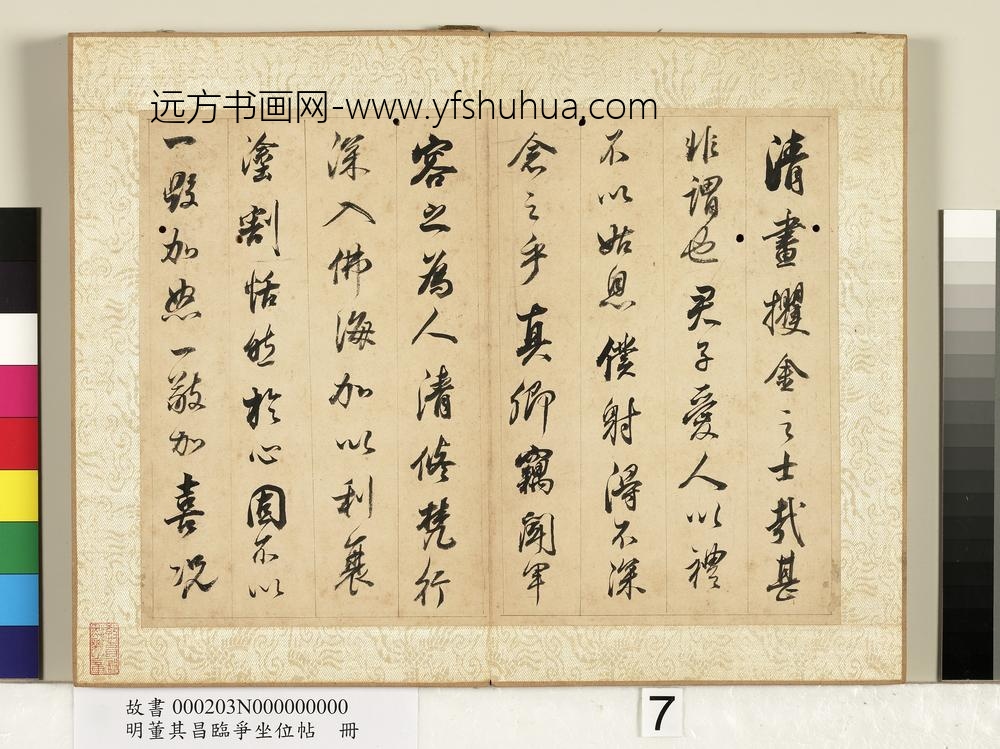 远方书画网-www.yfshuhua.com
清晝攫金之士哉甚
非謂也君子愛人以禮
不以姑息僕射得不深
念之乎真卿竊聞軍
容之為人清修梵行
深入佛海加以利衰
塗割恬然於心固不以
一毀加怒一敬加喜况
故書 000203N000000000
明董其昌臨爭坐位帖 冊
7